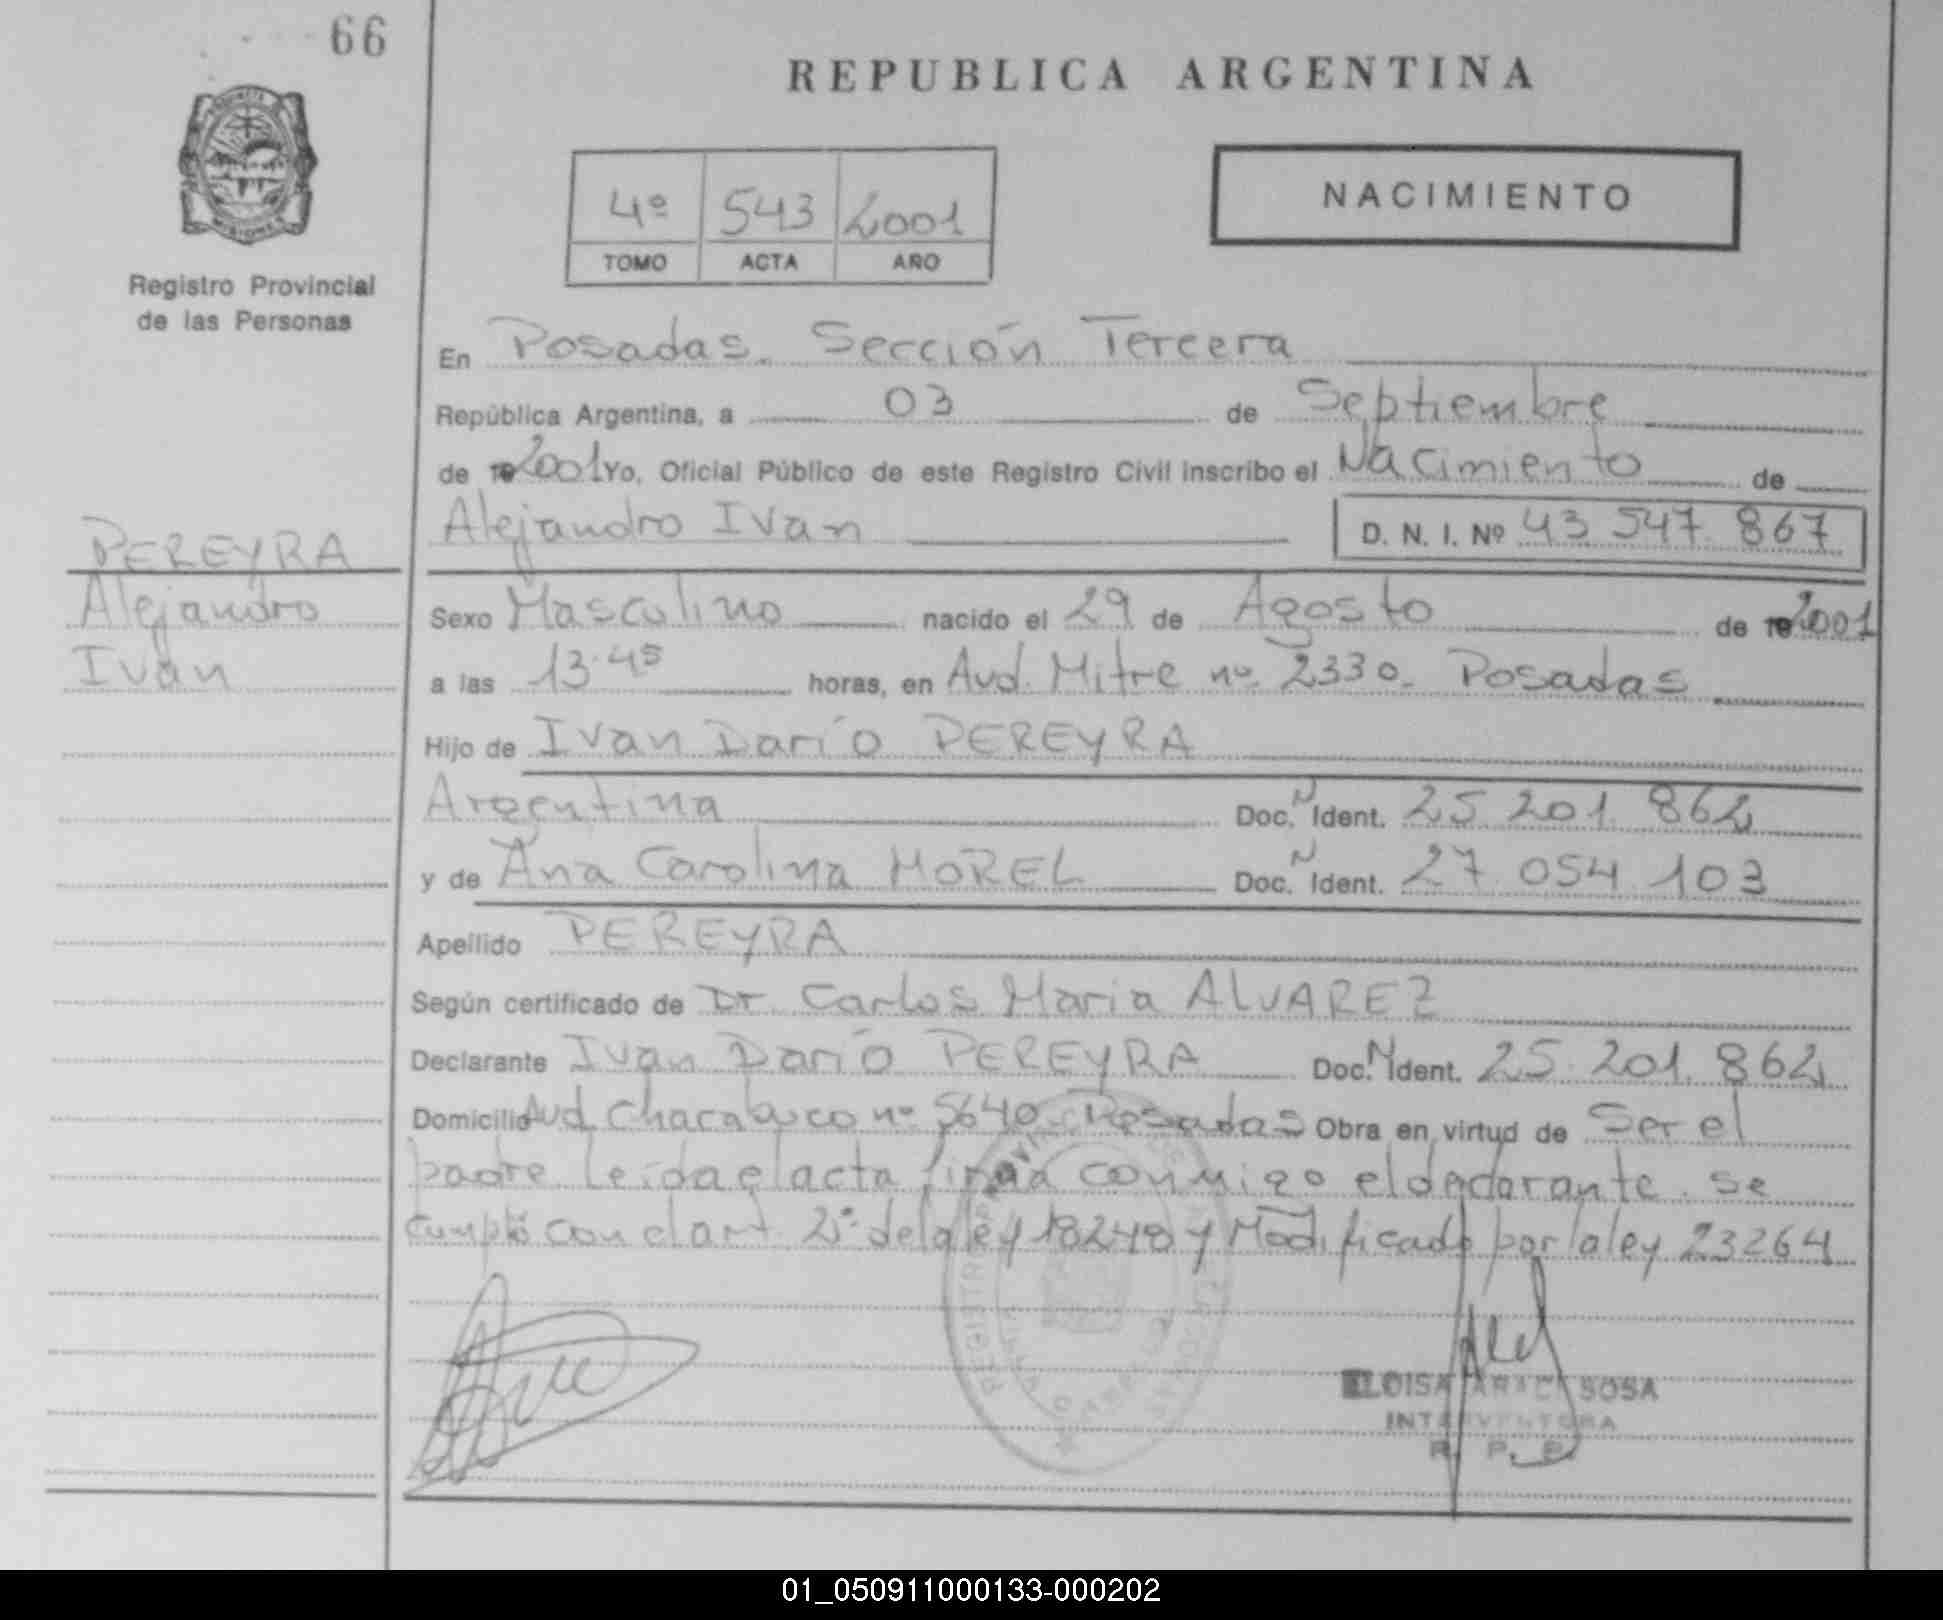 66
REPUBLICA ARGENTINA
NACIMIENTO
4º 543 2001
TOMO ACTA AÑO
Registro Provincial
de las Personas
En Posadas. Sección Tercera
República Argentina, a 03 de Septiembre
de 2001 Yo, Oficial Público de este Registro Civil inscribo el Nacimiento de
Alejandro Ivan D. N. I. Nº 43 547 867
PEREYRA
Alejandro
Ivan
Sexo Masculino nacido el 29 de Agosto de 2001
a las 13.45 horas, en Avd. Mitre nº 2330. Posadas
Hijo de Ivan Darío PEREYRA
Argentina Doc. N Ident. 25 201 862
y de Ana Carolina MOREL Doc. N Ident. 27 054 103
Apellido PEREYRA
Según certificado de Dr. Carlos Maria ALVAREZ
Declarante Ivan Darío PEREYRA Doc. N Ident. 25 201 862
Domicilio Avd Chacabuco nº 5640 Posadas Obra en virtud de Ser el
padre Leida el acta firma conmigo el declarante. Se
cumplió con el art 2º de la ley 18248 y Modificado por la ley 23264
ELOISA ARACI SOSA
INTERVENTORA
R. P. P.
01_050911000133-000202